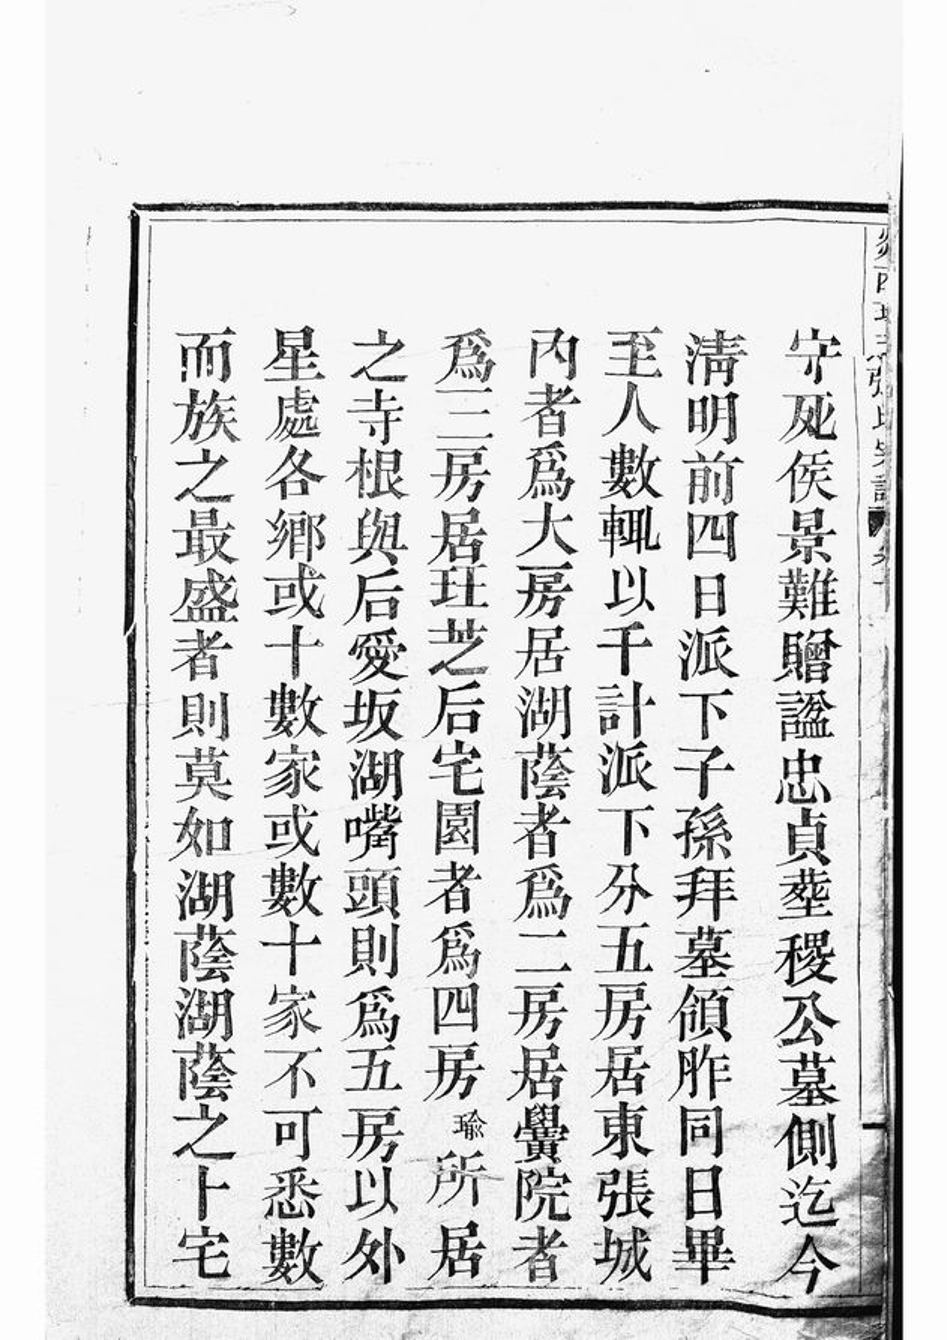 守死侯景難贈謚忠貞塟稷公墓側迄今
淸明前四日派下子孫拜墓頒胙同日畢
至人數輒以千計派下分五房居東張城
內者爲大房居湖蔭者爲二房居黌院者
爲三房居玨芝后宅園者爲四房瑜所居
之寺根與后愛坂湖嘴頭則爲五房以外
星處各鄉或十數家或數十家不可悉數
而族之最盛者則莫如湖蔭湖蔭之卜宅